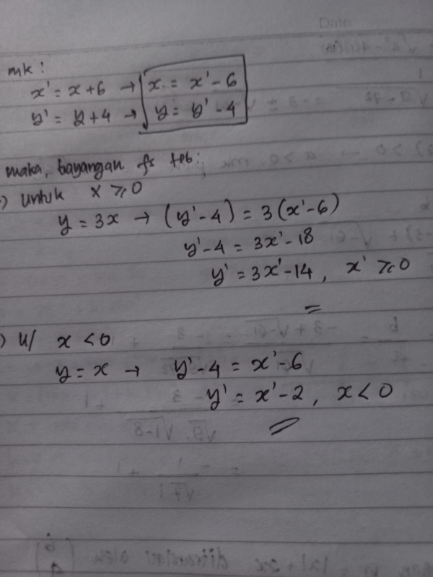 mk :
x' = x + 6 → x = x' - 6
y' = y + 4 → y = y' - 4
maka, bayangan fs tsb:
) untuk x ≥ 0
y = 3x → (y' - 4) = 3(x' - 6)
y' - 4 = 3x' - 18
y' = 3x' - 14 , x' ≥ 0
) u/ x < 0
y = x → y' - 4 = x' - 6
y' = x' - 2 , x < 0